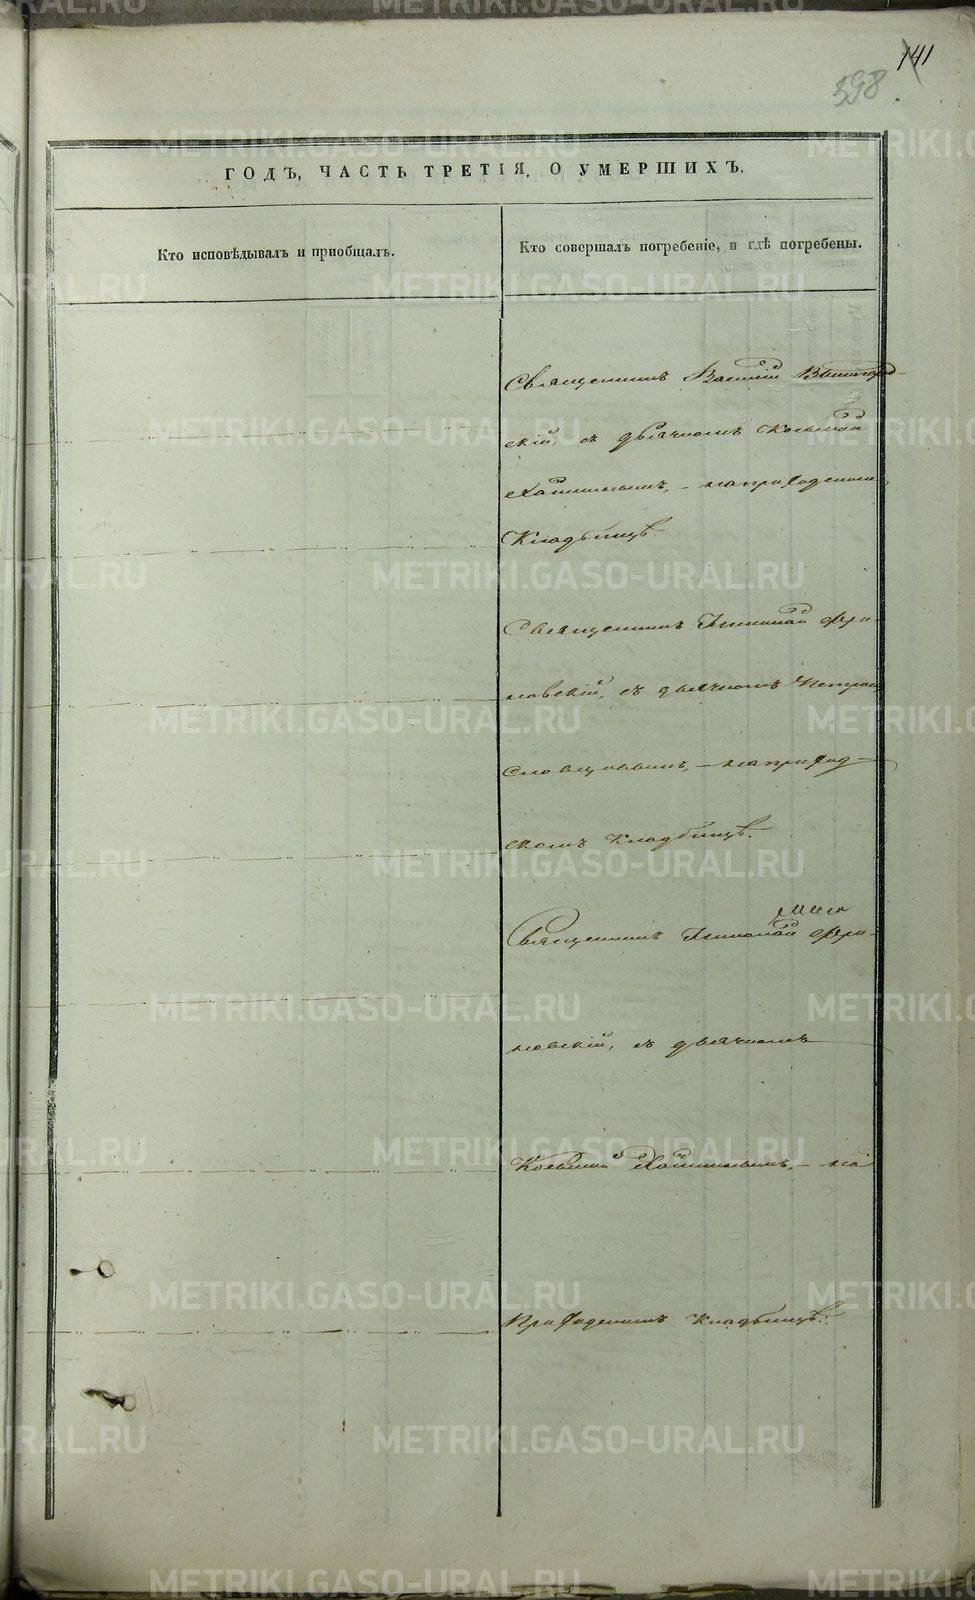 141
398
ГОДЪ, ЧАСТЬ ТРЕТІЯ, О УМЕРШИХЪ.
Кто исповѣдывалъ и приобщалъ.
Кто совершалъ погребеніе, и гдѣ погребены.
Священникъ Василій Вышегород-
скій, съ дьячкомъ Козьмой
на приходскомъ
Кладбищѣ
Священникъ Николай
новскій, съ дьячкомъ Петромъ
Словцовымъ, - на приход-
скомъ Кладбищѣ.
Священникъ Николай
новскій, съ дьячкомъ
Козьмой - на
приходскомъ Кладбищѣ.
METRIKI.GASO-URAL.RU